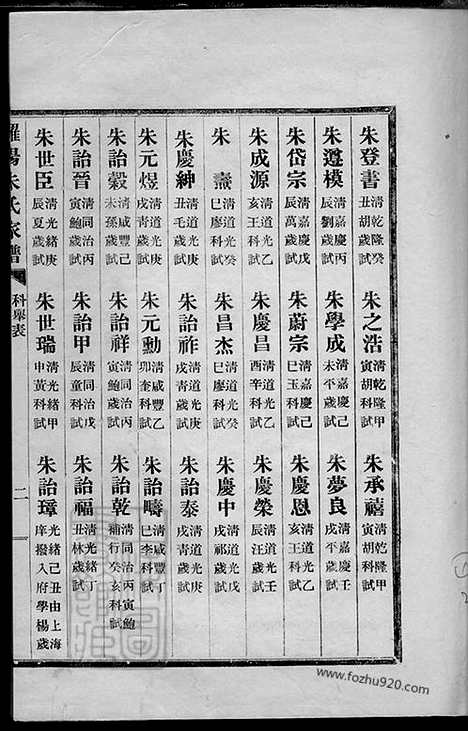 朱登書 清乾隆癸丑胡歲試
朱之浩 清乾隆甲寅胡科試
朱承禧 清乾隆甲寅胡科試
朱遵模 清嘉慶丙辰劉歲試
朱學成 清嘉慶己未平歲試
朱夢良 清嘉慶壬戌平歲試
朱岱宗 清嘉慶戊辰萬歲試
朱蔚宗 清嘉慶己巳玉科試
朱慶恩 清道光乙亥王科試
朱成源 清道光乙亥王科試
朱慶昌 清道光乙酉辛科試
朱慶榮 清道光壬辰汪歲試
朱燾 清道光癸巳廖科試
朱昌杰 清道光癸巳廖科試
朱慶中 清道光戊戌祁歲試
朱慶紳 清道光辛丑毛歲試
朱詒祚 清道光庚戌青歲試
朱詒泰 清道光庚戌青歲試
朱元煜 清道光庚戌青歲試
朱元勳 清咸豐乙卯奎科試
朱詒疇 清咸豐丁巳李科試
朱詒穀 清咸豐己未孫歲試
朱詒祥 清同治丙寅鮑歲試
朱詒乾 清同治丙寅鮑補行癸亥科試
朱詒晉 清同治丙寅鮑歲試
朱詒甲 清同治戊辰童科試
朱詒福 清光緒丁丑林歲試
朱世臣 清光緒庚辰夏歲試
朱世瑞 清光緒甲申黃科試
朱詒璋 光緒己丑由上海庠撥入府學楊歲
羅陽朱氏家譜
科舉表
二
www.fozhu920.com